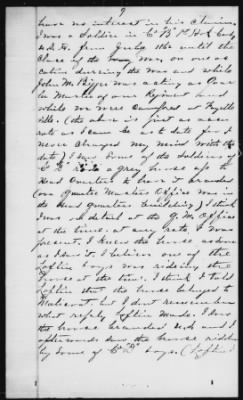 9
have no interest in his claim.
I was a Soldier in Co B 1st
from July 1862 until the
close of the war, on one oc
casion during the war and while
John M. was acting as Quar
ter Master of our Regiment and
while we were camped at Fayette
ville (the above is just as accu
rate as I can be as to date for I
never charged my mind with the
date) I saw some of the Soldiers of
a grey horse up to
Head Quarters to have it branded
(our Quarter Masters Office was in
the Head quarters building) I think
I was on detail at the Q. M. Office
at the time, at any rate I was
present, I knew the horse as soon
as I saw it. I believe one of the
Loftin boys was riding the
horse at the time, I think I told
Loftin that the horse belonged to
but I don't remember
what reply Loftin made. I saw
the horse branded U.S. and I
afterwards saw the horse ridden
by some of Co boys (Loftin